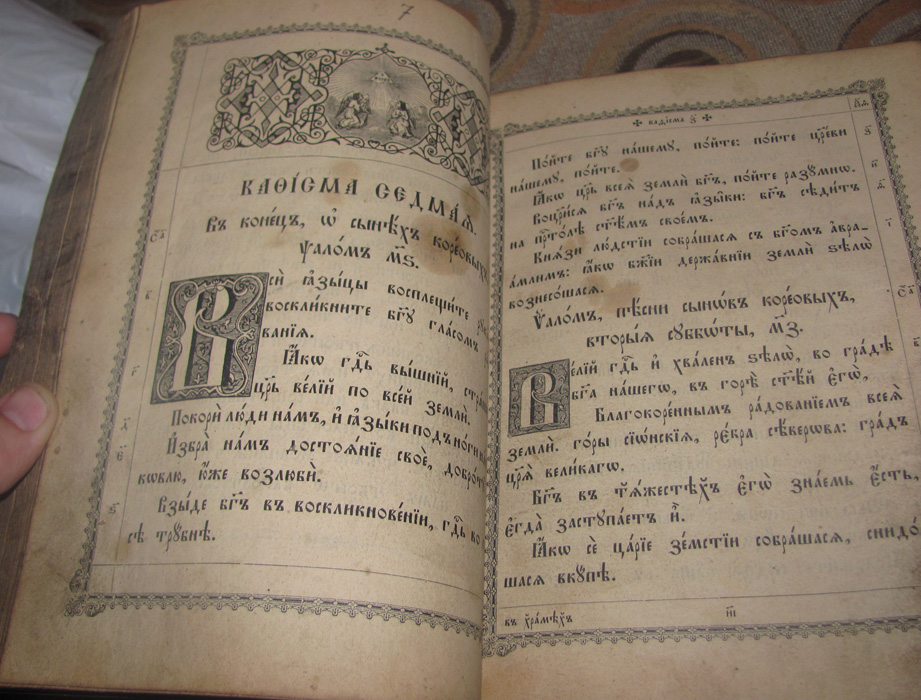 7
КАѲІ́СМА СЕДМА́Ѧ.
Въ коне́цъ, ѡ҆ сынѣ́хъ коре́овыхъ
ѱало́мъ м҃ѕ.
Всѝ ꙗ҆зы́цы восплещи́те
воскли́кните бг҃ꙋ гла́сомъ
ва́нїѧ.
Ꙗ҆́кѡ гд҇ь вы́шнїй,
цр҃ь ве́лїй по все́й землѝ.
Покорѝ лю́ди на́мъ, и҆ ꙗ҆зы́ки под̾
И҆збра̀ на́мъ достоѧ́нїе своѐ, добро́тꙋ
ковлю, ю҆́же возлюбѝ.
Взы́де бг҃ъ въ воскликнове́нїи, гд҇ь во
сѣ трꙋ́бнѣ.
каѳїсма з҃
По́йте бг҃ꙋ на́шемꙋ, по́йте: по́йте цр҃е́ви
на́шемꙋ, по́йте.
Ꙗ҆́кѡ цр҃ь всеѧ̀ землѝ бг҃ъ, по́йте разꙋ́мнѡ.
Воцр҃и́сѧ бг҃ъ над̾ ꙗ҆зы́ки: бг҃ъ сѣди́тъ
на прⷭ҇то́лѣ ст҃ѣ́мъ свое́мъ.
Кнѧ̑зи лю́дстїи собра́шасѧ съ бг҃омъ а҆вра-
а́млимъ: ꙗ҆́кѡ бж҃їи держа́внїи землѝ ѕѣлѡ̀
вознесо́шасѧ.
Ѱало́мъ, пѣ́сни сынѡ́въ коре́овыхъ,
вторы́ѧ сꙋббѡ́ты, м҃з.
Ве́лїй гд҇ь и҆ хва́ленъ ѕѣлѡ̀, во гра́дѣ
бг҃а на́шегѡ, въ горѣ̀ ст҃ѣ́й є҆гѡ̀,
Благокоре́ннымъ ра́дованїемъ всеѧ̀
землѝ. го́ры сїѡ́нскїѧ, ре́бра сѣ́верѡва: гра́дъ
цр҃ѧ̀ вели́кагѡ.
Бг҃ъ въ тѧ́жестехъ є҆гѡ̀ зна́емь є҆́сть,
є҆гда̀ застꙋпа́етъ и҆̀.
Ꙗ҆́кѡ сѐ ца́рїе зе́мстїи собра́шасѧ, снидо
шасѧ вкꙋ́пѣ.